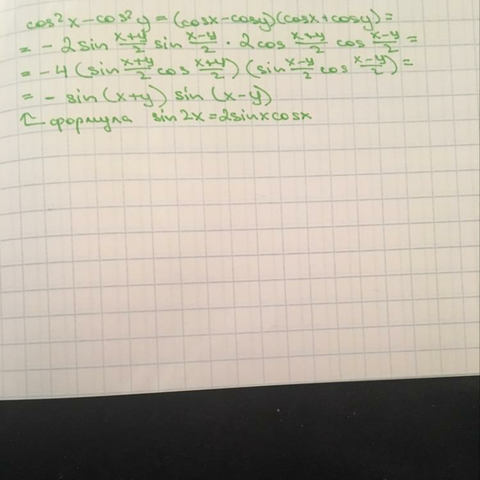 cos²x-cos²y=(cosx-cosy)(cosx+cosy)=
= - 2sin (x+y)/2 sin (x-y)/2 · 2cos (x+y)/2 cos (x-y)/2 =
= -4 (sin (x+y)/2 cos (x+y)/2) (sin (x-y)/2 cos (x-y)/2) =
= - sin(x+y) sin(x-y)
↑ формула sin2x=2sinxcosx